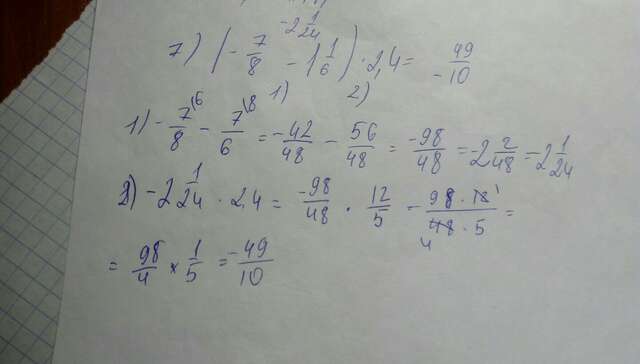 -2 1/24
7) (- 7/8 - 1 1/6) · 2,4 = - 49/10
1) 2)
1) - 7/8 \6 - 7/6 \8 = -42/48 - 56/48 = -98/48 = -2 2/48 = -2 1/24
2) -2 1/24 · 2,4 = -98/48 · 12/5 = 98 · 12 1/48 4 · 5 =
= 98/4 × 1/5 = -49/10